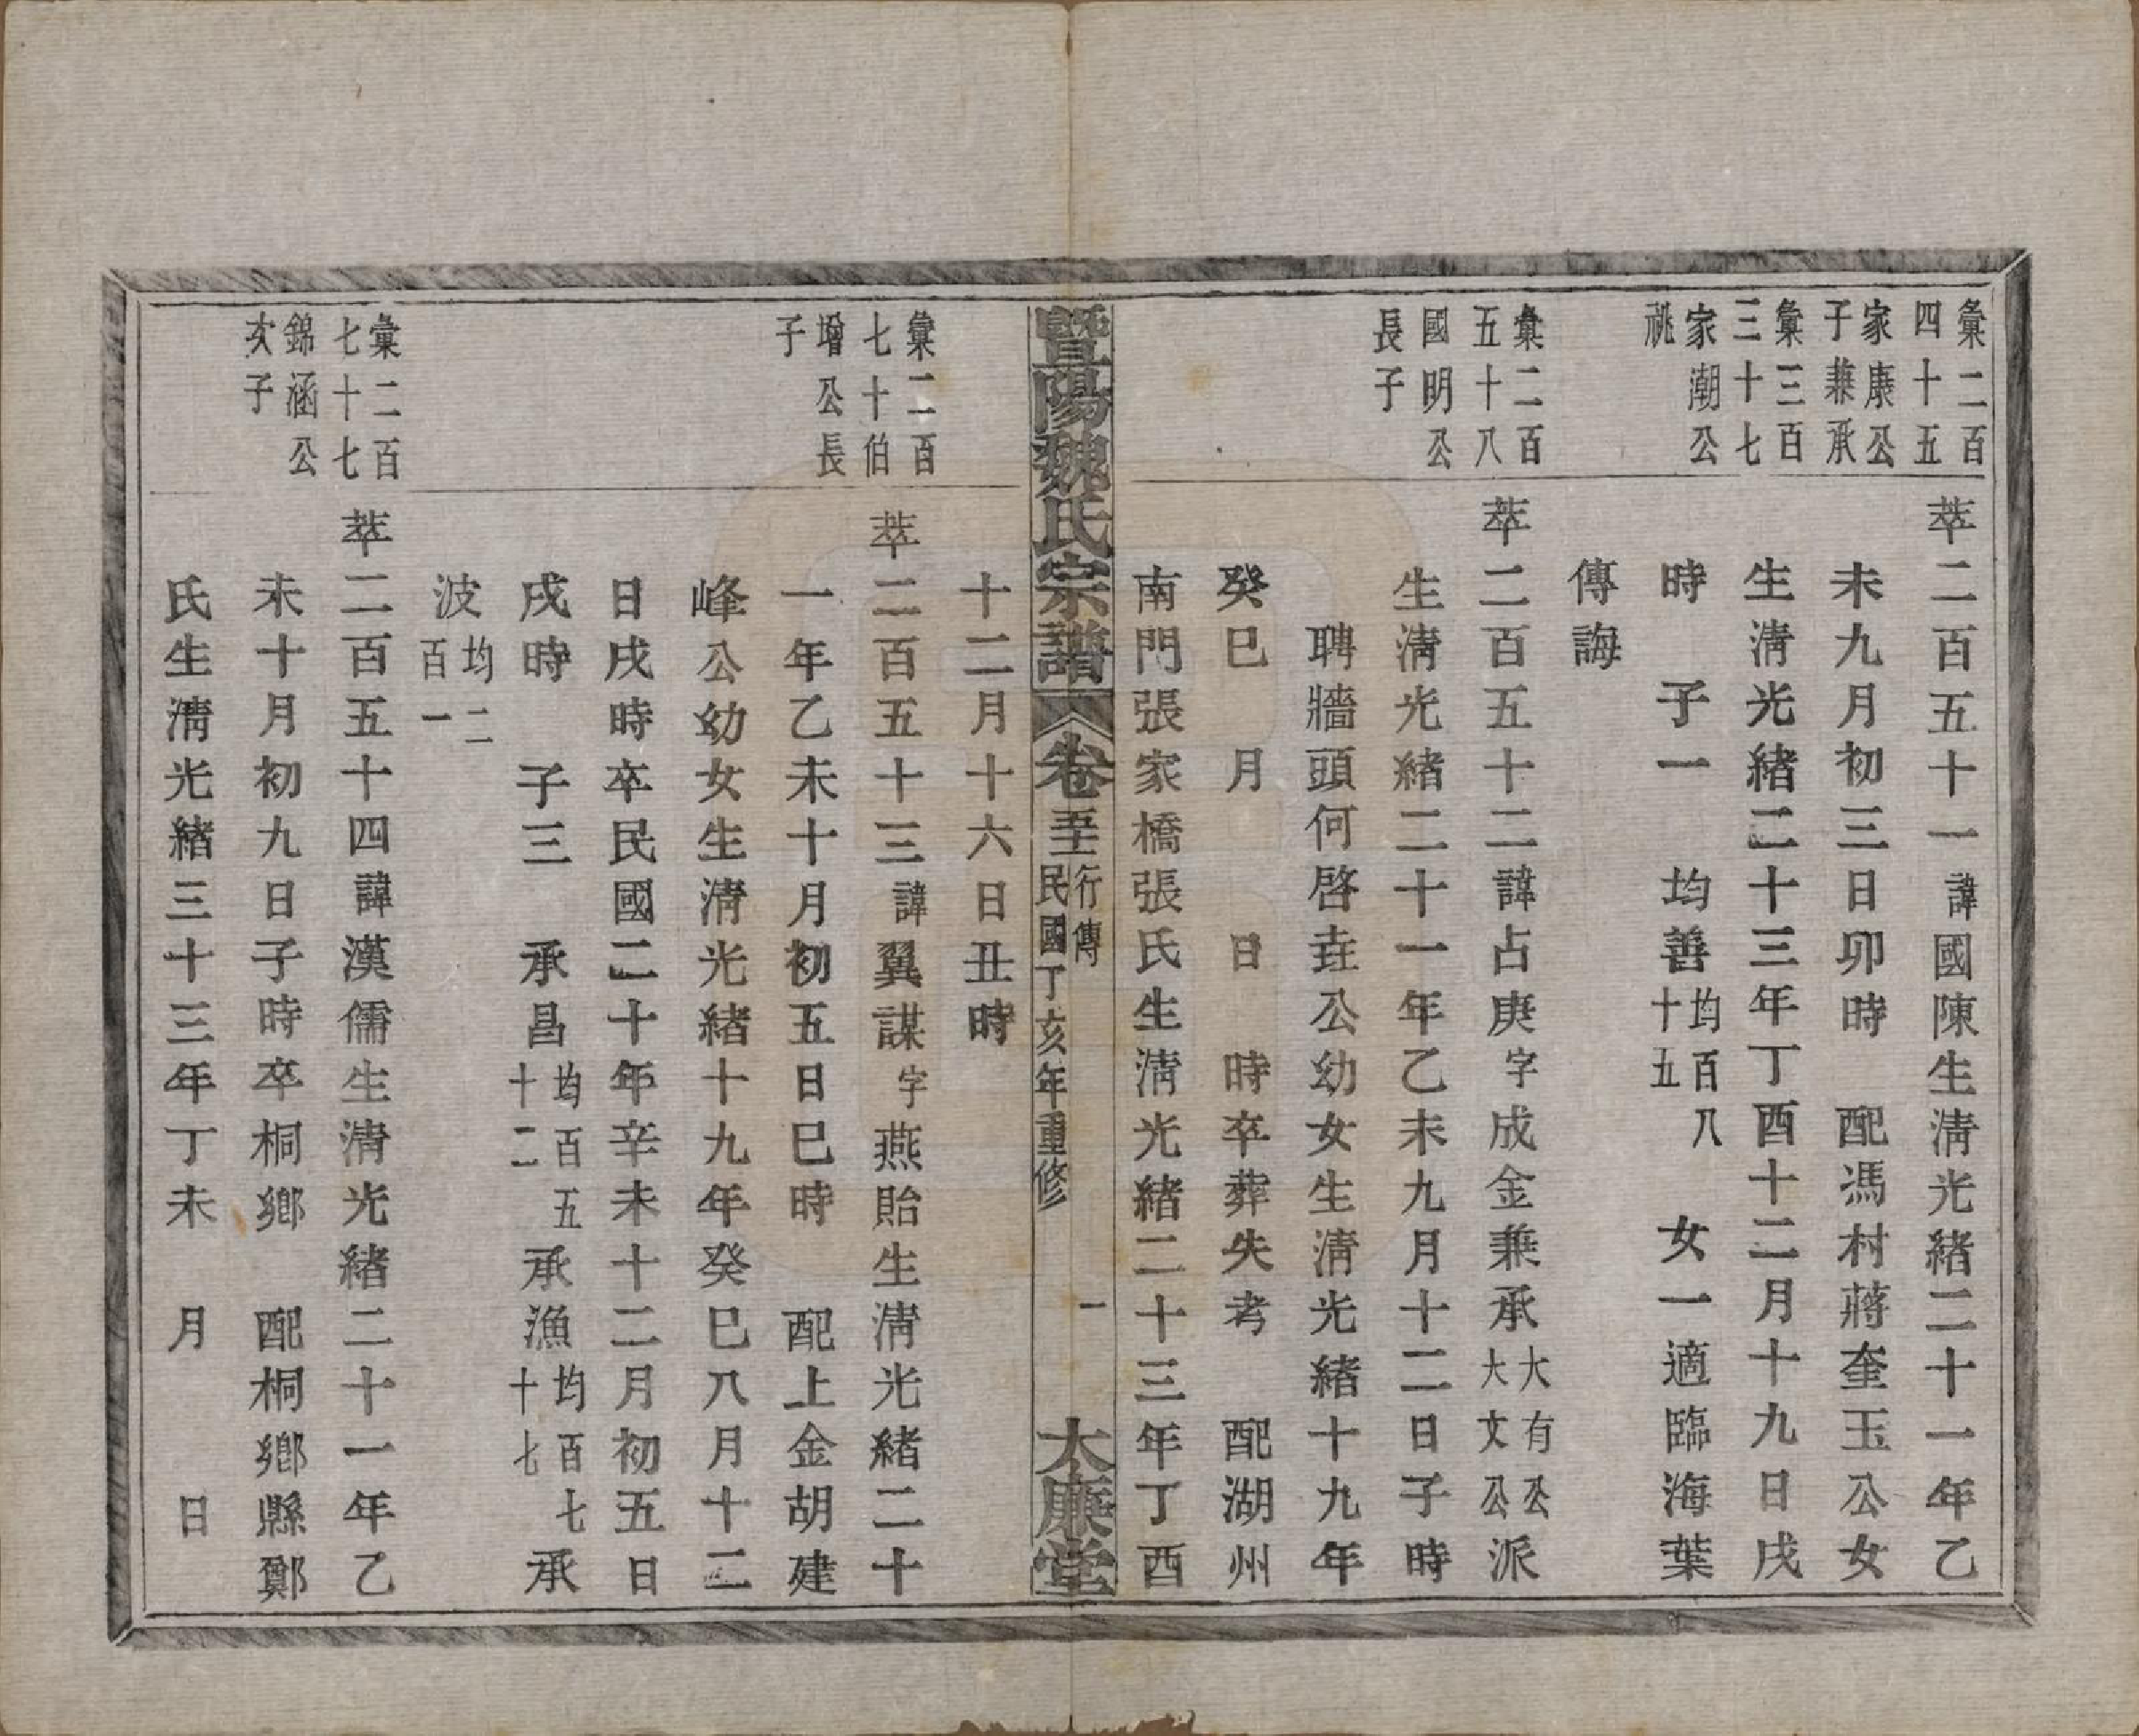 彙二百
四十五
家康公
子兼承
彙三百
三十七
家潮公
祧
萃二百五十一諱國陳生淸光緒二十一年乙
未九月初三日卯時 配馮村蔣奎玉公女
生淸光緒二十三年丁酉十二月十九日戌
時 子一 均善均百八十五 女一適臨海葉
傳誨
彙二百
五十八
國明公
長子
萃二百五十二諱占庚字成金兼承大有公大文公派
生淸光緒二十一年乙未九月十二日子時
聘牆頭何啓垚公幼女生淸光緒十九年
癸巳 月 日 時卒葬失考 配湖州
南門張家橋張氏生淸光緒二十三年丁酉
暨陽魏氏宗譜 卷五 行傳 民國丁亥年重修 一 太廉堂
十二月十六日丑時
彙二百
七十伯
增公長
子
萃二百五十三諱翼謀字燕貽生淸光緒二十
一年乙未十月初五日巳時 配上金胡建
峰公幼女生淸光緒十九年癸巳八月十二
日戌時卒民國二十年辛未十二月初五日
戌時 子三 承昌均百五十二承漁均百七十七承
波均二百一
彙二百
七十七
錦涵公
次子
萃二百五十四諱漢儒生淸光緒二十一年乙
未十月初九日子時卒桐鄉 配桐鄉縣鄭
氏生淸光緒三十三年丁未 月 日